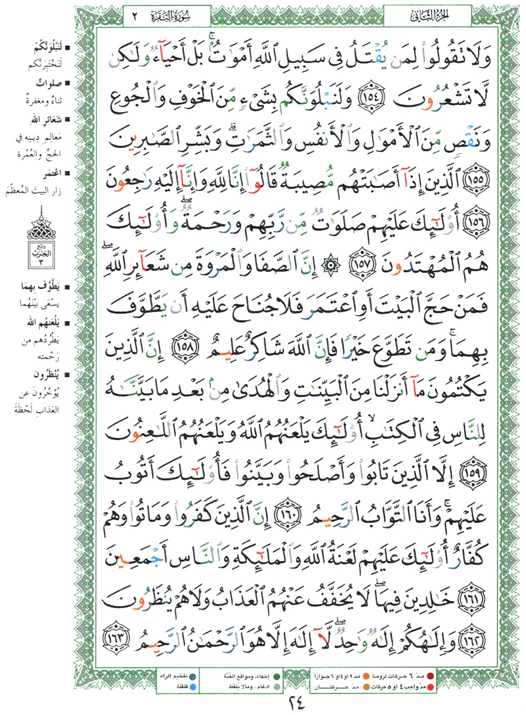 سُورَةُ البَقَرَة ٢
الجُزءُ الثَّانِي
وَلَا تَقُولُوا۟ لِمَن يُقْتَلُ فِى سَبِيلِ ٱللَّهِ أَمْوَٰتٌۢ ۚ بَلْ أَحْيَآءٌ وَلَٰكِن
لَّا تَشْعُرُونَ ١٥٤ وَلَنَبْلُوَنَّكُم بِشَىْءٍ مِّنَ ٱلْخَوْفِ وَٱلْجُوعِ
وَنَقْصٍ مِّنَ ٱلْأَمْوَٰلِ وَٱلْأَنفُسِ وَٱلثَّمَرَٰتِ ۗ وَبَشِّرِ ٱلصَّٰبِرِينَ
١٥٥ ٱلَّذِينَ إِذَآ أَصَٰبَتْهُم مُّصِيبَةٌ قَالُوٓا۟ إِنَّا لِلَّهِ وَإِنَّآ إِلَيْهِ رَٰجِعُونَ
١٥٦ أُو۟لَٰٓئِكَ عَلَيْهِمْ صَلَوَٰتٌ مِّن رَّبِّهِمْ وَرَحْمَةٌ ۖ وَأُو۟لَٰٓئِكَ
هُمُ ٱلْمُهْتَدُونَ ١٥٧ ۞ إِنَّ ٱلصَّفَا وَٱلْمَرْوَةَ مِن شَعَآئِرِ ٱللَّهِ ۖ
فَمَنْ حَجَّ ٱلْبَيْتَ أَوِ ٱعْتَمَرَ فَلَا جُنَاحَ عَلَيْهِ أَن يَطَّوَّفَ
بِهِمَا ۚ وَمَن تَطَوَّعَ خَيْرًا فَإِنَّ ٱللَّهَ شَاكِرٌ عَلِيمٌ ١٥٨ إِنَّ ٱلَّذِينَ
يَكْتُمُونَ مَآ أَنزَلْنَا مِنَ ٱلْبَيِّنَٰتِ وَٱلْهُدَىٰ مِنۢ بَعْدِ مَا بَيَّنَّٰهُ
لِلنَّاسِ فِى ٱلْكِتَٰبِ ۙ أُو۟لَٰٓئِكَ يَلْعَنُهُمُ ٱللَّهُ وَيَلْعَنُهُمُ ٱللَّٰعِنُونَ
١٥٩ إِلَّا ٱلَّذِينَ تَابُوا۟ وَأَصْلَحُوا۟ وَبَيَّنُوا۟ فَأُو۟لَٰٓئِكَ أَتُوبُ
عَلَيْهِمْ ۚ وَأَنَا ٱلتَّوَّابُ ٱلرَّحِيمُ ١٦٠ إِنَّ ٱلَّذِينَ كَفَرُوا۟ وَمَاتُوا۟ وَهُمْ
كُفَّارٌ أُو۟لَٰٓئِكَ عَلَيْهِمْ لَعْنَةُ ٱللَّهِ وَٱلْمَلَٰٓئِكَةِ وَٱلنَّاسِ أَجْمَعِينَ
١٦١ خَٰلِدِينَ فِيهَا ۖ لَا يُخَفَّفُ عَنْهُمُ ٱلْعَذَابُ وَلَا هُمْ يُنظَرُونَ
١٦٢ وَإِلَٰهُكُمْ إِلَٰهٌ وَٰحِدٌ ۖ لَّآ إِلَٰهَ إِلَّا هُوَ ٱلرَّحْمَٰنُ ٱلرَّحِيمُ ١٦٣
لَنَبْلُوَنَّكُمْ
لَنَخْتَبِرَنَّكُم
صلوات
ثناءٌ ومغفرةٌ
شَعائرِ الله
مَعالِم دِينِه في
الحجّ والعُمْرة
اعْتَمَرَ
زارَ البيتَ المُعظَّم
ربع
الحزب
٣
يَطَّوَّفَ بِهِمَا
يَسْعَى بَيْنَهُما
يَلْعَنُهم الله
يَطْرُدُهم من
رَحْمته
يُنْظَرُون
يُؤخَّرُونَ عن
العَذاب لَحْظةً
مدّ ٦ حركات لزوماً
مدّ ٢ او ٤ او ٦ جوازاً
إخفاء، ومواقع الغُنَّة
تفخيم الراء
مدّ واجب ٤ او ٥ حركات
مدّ حركتان
إدغام، وما لا يُلفَظ
قلقلة
٢٤